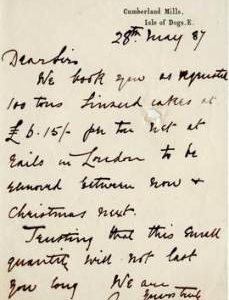 Cumberland Mills,
Isle of Dogs, E.
28th May 87
Dear Sirs
We book you as requested
100 tons Linseed cakes at
£6.15/- per ton net at
rails in London to be
removed between now &
Christmas next.
Trusting that this small
quantity will not last
you long We are